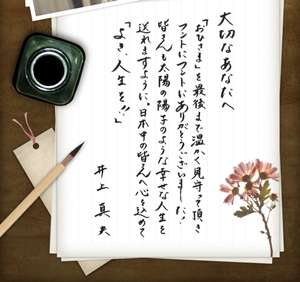 大切なあなたへ
「おひさま」を最後まで温かく見守って頂き
ホントにホントにありがとうございました！
皆さんも太陽の陽子のような幸せな人生を
送れますように、日本中の皆さんへ心を込めて
「よき、人生を!!」
井上真央